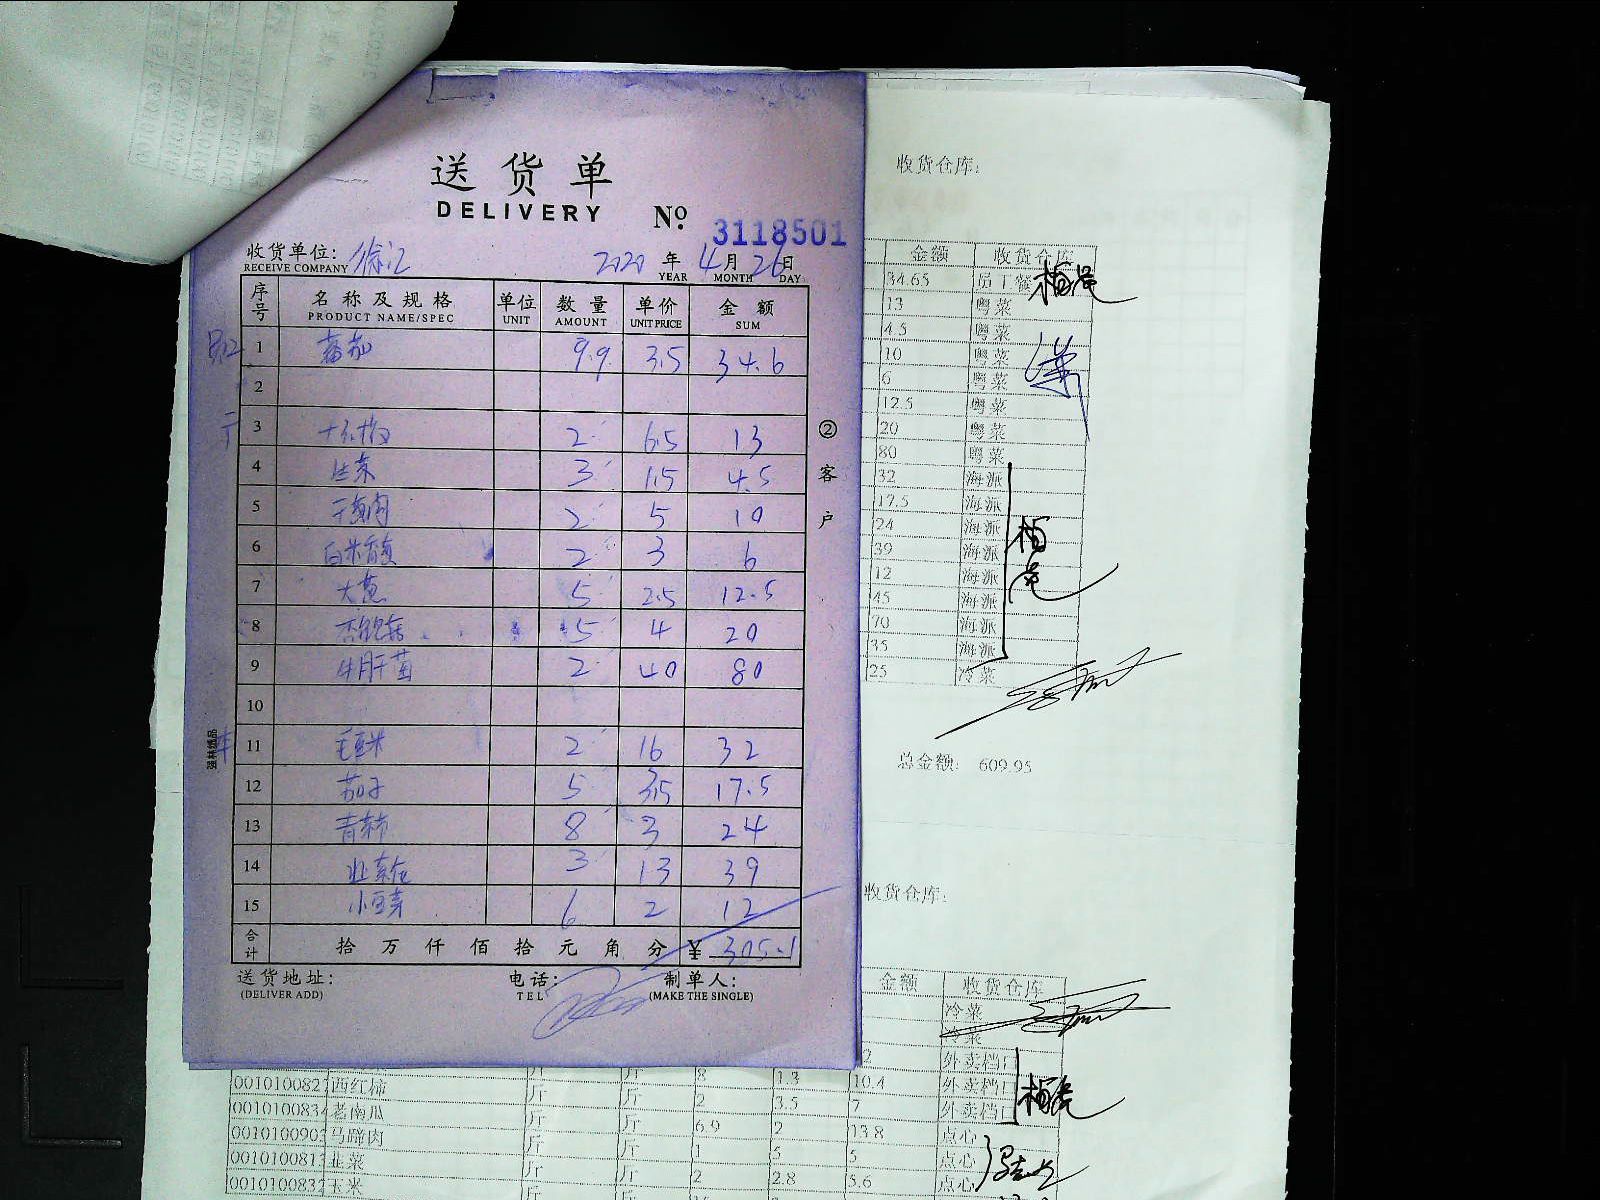 送货单
DELIVERY
№ 3118501
收货单位: 徐汇 2020 年 4 月 26 日
RECEIVE COMPANY YEAR MONTH DAY
序号 名称及规格 单位 数量 单价 金额
PRODUCT NAME/SPEC UNIT AMOUNT UNIT PRICE SUM
1 番茄 9.9 3.5 34.6
2
3 2 6.5 13
4 生菜 3 1.5 4.5
5 2 5 10
6 2 3 6
7 大葱 5 2.5 12.5
8 杏鲍菇 5 4 20
9 牛肝菌 2 40 80
10
11 毛豆米 2 16 32
12 茄子 5 3.5 17.5
13 青 8 3 24
14 韭菜 3 13 39
15 小豆芽 6 2 12
合计 拾 万 仟 佰 拾 元 角 分 ¥ 305.1
送货地址: 电话: 制单人:
(DELIVER ADD) TEL (MAKE THE SINGLE)
② 客户
强林纸品
收货仓库:
金额 收货仓库
34.65 员工餐
13 粤菜
4.5 粤菜
10 粤菜
6 粤菜
12.5 粤菜
20 粤菜
80 粤菜
32 海派
17.5 海派
24 海派
39 海派
12 海派
45 海派
70 海派
35 海派
25 冷菜
总金额: 609.95
收货仓库:
金额 收货仓库
冷菜
冷菜
2 外卖档口
西红柿 斤 斤 8 1.3 10.4 外卖档口
老南瓜 斤 斤 2 3.5 7 外卖档口
马蹄肉 斤 斤 6.9 2 13.8 点心
韭菜 斤 斤 1 5 5 点心
玉米 斤 斤 2 2.8 5.6 点心